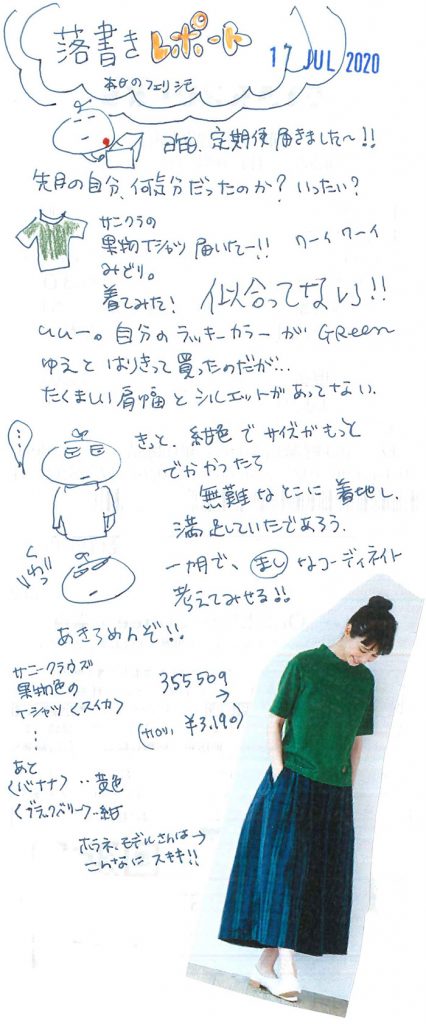 落書きレポート
17 JUL 2020
本日のフェリシモ
昨日、定期便届きました〜!!
先月の自分、何気分だったのか?いったい?
サニクラの
果物Tシャツ届いたー!! ワーイ ワーイ
みどり。
着てみた! 似合ってない!!
ううー。自分のラッキーカラーがGReen
ゆえとはりきって買ったのだが…
たくましい肩幅とシルエットがあってない.
きっと、紺色でサイズがもっと
でかかったら
無難なとこに着地し、
満足していたであろう.
一ヵ月で、ましなコーディネイト
考えてみせる!!
あきらめんぞ!!
サニークラウズ
果物色の
Tシャツ〈スイカ〉
355509
→
¥3.190)
⋮
あと
〈バナナ〉‥黄色
〈ブラックベリー〉‥紺
ホラネ、モデルさんは→
こんなにステキ!!